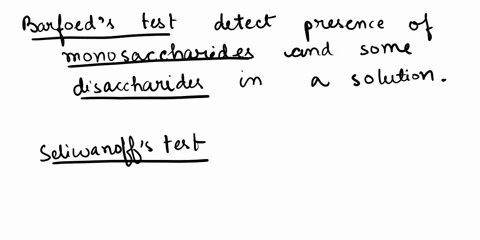 Barfoed's test detect presence of
monosaccharides and some
disaccharides in a solution.
Seliwanoff's test